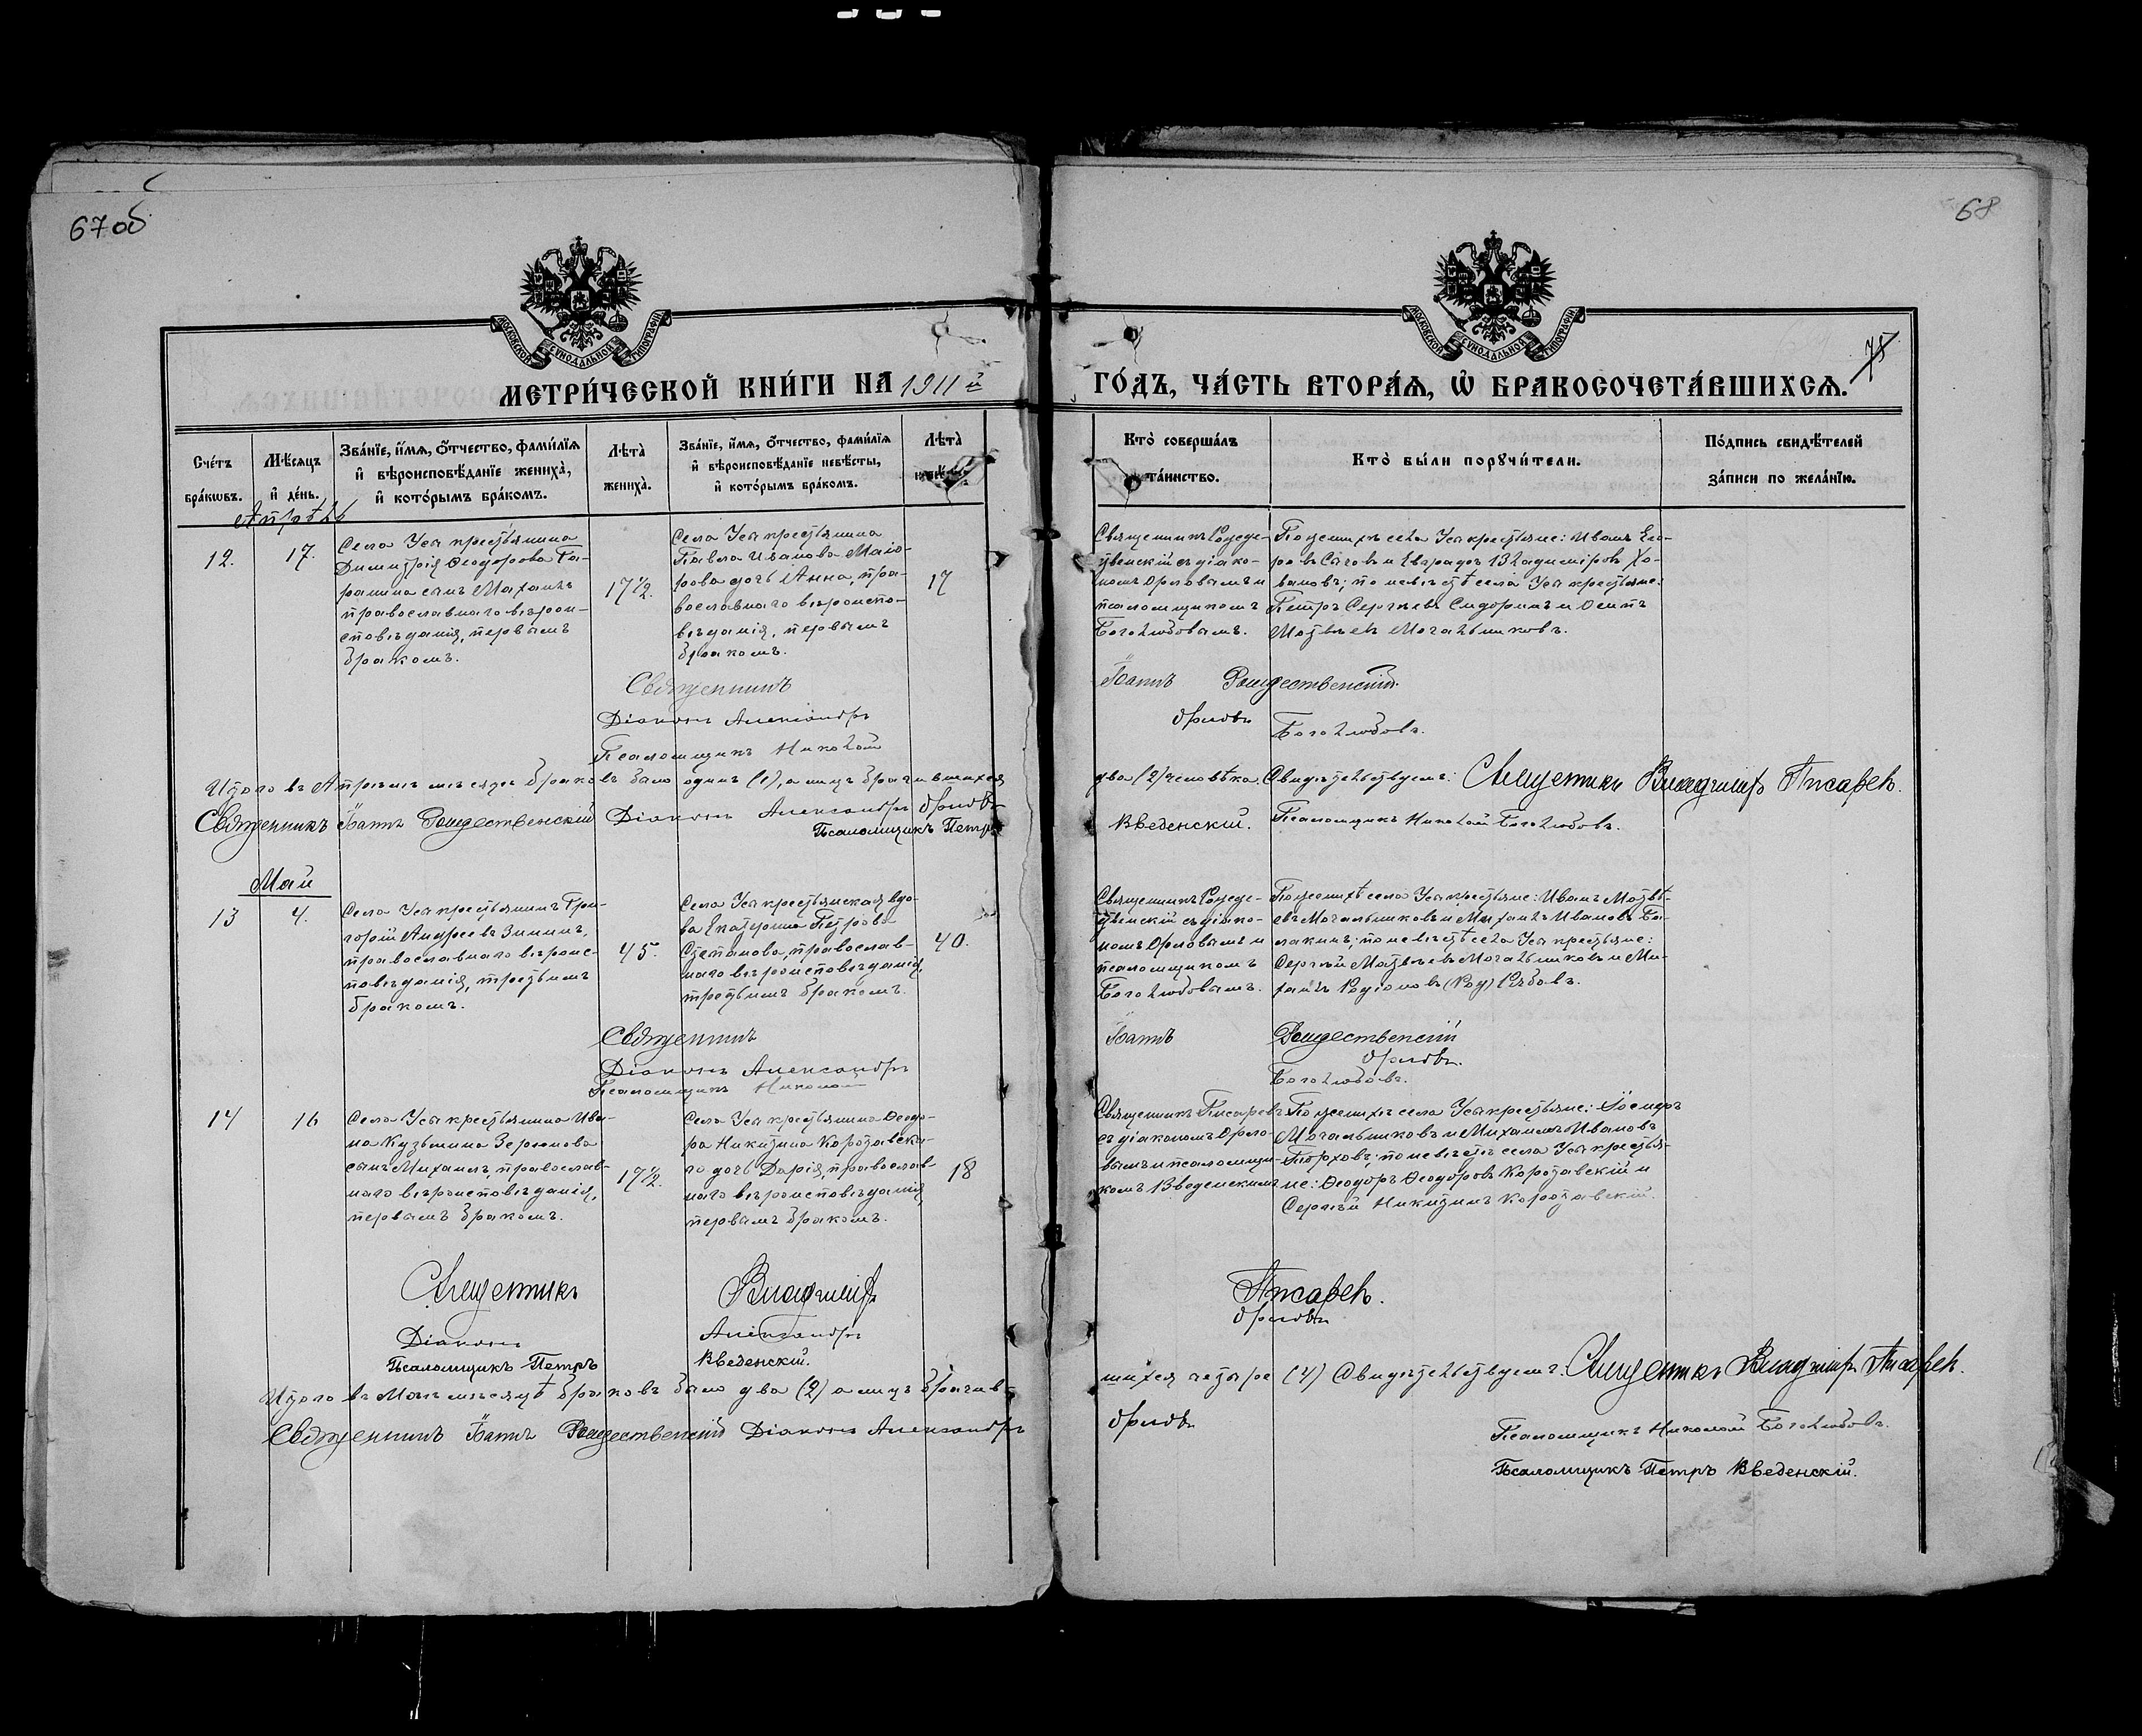 67 об
68
75
МОСКОВСКОЙ СѴНОДАЛЬНОЙ ТИПОГРАФІИ
МОСКОВСКОЙ СѴНОДАЛЬНОЙ ТИПОГРАФІИ
МЕТРИ́ЧЕСКОЙ КНИ́ГИ НА 1911 й
ГО́ДЪ, ЧА́СТЬ ВТОРА́Я, Ѡ БРАКОСОЧЕТА́ВШИХСЯ.
Сче́тъ
бра́кѡвъ.
Мѣ́сяцъ
и҆ де́нь.
Зва́нїе, и҆́мя, ѻ҆́тчество, фамилїя
и҆ вѣроисповѣ́данїе жениха̀,
и҆ кото́рымъ бра́комъ.
Лѣта̀
жениха̀.
Зва́нїе, и҆́мя, ѻ҆́тчество, фамилїя
и҆ вѣроисповѣ́данїе невѣ́сты,
и҆ кото́рымъ бра́комъ.
Лѣта̀
Кто̀ соверша́лъ
та́инство.
Кто̀ бы́ли порꙋчи́тели.
По́дпись свидѣ́телей
за́писи по жела́нїю.
Апрѣль
12.
17.
Села Усы крестьянина
Димитрія Ѳеодорова Га-
ранина сынъ Михаилъ
православнаго вѣроис-
повѣданія, первымъ
бракомъ.
17½.
Села Усы крестьянина
Павла Иванова Маіо-
рова дочь Анна, пра-
вославнаго вѣроиспо-
вѣданія, первымъ
бракомъ.
17
Священникъ Рожде-
ственскій съ діако-
номъ Орловымъ и
псаломщикомъ
Боголюбовымъ.
По женихѣ села Усы крестьяне: Иванъ Его-
ровъ и Владиміровъ
по невѣстѣ села Усы крестьяне:
Петръ Сергѣевъ Сидоринъ и Осипъ
Матвѣевъ Мочальниковъ.
Священникъ Іоаннъ Рождественскій.
Діаконъ Александръ Орловъ
Псаломщикъ Николай Боголюбовъ.
Итого въ Апрѣлѣ мѣсяцѣ браковъ было одинъ (1), а лицъ брачившихся два (2) человѣка. Свидѣтельствуемъ: Священникъ Владиміръ Писаревъ.
Священникъ Іоаннъ Рождественскій Діаконъ Александръ Орловъ Псаломщикъ Николай Боголюбовъ.
Псаломщикъ Петръ Введенскій.
Май
13
4.
Села Усы крестьянинъ Гри-
горій Андреевъ Зининъ,
православнаго вѣроис-
повѣданія, третьимъ
бракомъ.
45.
Села Усы крестьянская вдо-
ва Екатерина Петрова
Степанова, православ-
наго вѣроисповѣданія,
третьимъ бракомъ.
40.
Священникъ Рожде-
ственскій съ діако-
номъ Орловымъ и
псаломщикомъ
Боголюбовымъ.
По женихѣ села Усы крестьяне: Иванъ Матвѣ-
евъ Мочальниковъ и Михаилъ Ивановъ Ба-
лакинъ; по невѣстѣ села Усы крестьяне:
Сергѣй Матвѣевъ Мочальниковъ и Ми-
хаилъ Родіоновъ Рябовъ.
Священникъ Іоаннъ Рождественскій
Діаконъ Александръ Орловъ.
Псаломщикъ Николай Боголюбовъ.
14
16
Села Усы крестьянина Ива-
на Кузьмина Зернова
сынъ Михаилъ, православ-
наго вѣроисповѣданія,
первымъ бракомъ.
17½.
Села Усы крестьянина Ѳеодо-
ра Никитина Коротавска-
го дочь Дарія, православ-
наго вѣроисповѣданія
первымъ бракомъ.
18
Священникъ Писаревъ
съ діакономъ Орло-
вымъ и псаломщи-
комъ Введенскимъ
По женихѣ села Усы крестьяне:
Мочальниковъ и Михаилъ Ивановъ
по невѣстѣ села Усы крестья-
не: Ѳеодоръ Ѳеодоровъ Коротавскій и
Сергѣй Никитинъ Коротавскій.
Священникъ Владиміръ Писаревъ.
Діаконъ Александръ Орловъ
Псаломщикъ Петръ Введенскій.
Итого въ Маѣ мѣсяцѣ браковъ было два (2) а лицъ брачив-
шихся четыре (4) Свидѣтельствуемъ: Священникъ Владиміръ Писаревъ.
Священникъ Іоаннъ Рождественскій Діаконъ Александръ Орловъ
Псаломщикъ Николай Боголюбовъ.
Псаломщикъ Петръ Введенскій.